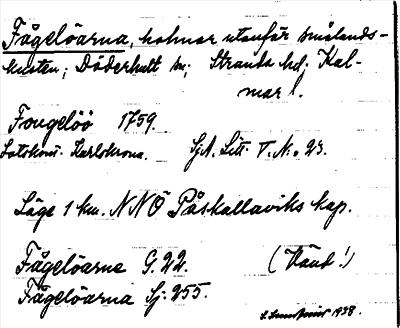 Fågelöarna, holmar utanför smålands-
kusten; Döderhult sn; Stranda hd; Kal-
mar l.
Fougelöö 1759.
Lotskont. Karlskrona. Sj.A. Litt. T. N:o 23.
Läge 1 km. NNÖ Påskallaviks kap.
Fågelöarne G. 22. (Känd!)
Fågelöarna Sj. 255.
1938.